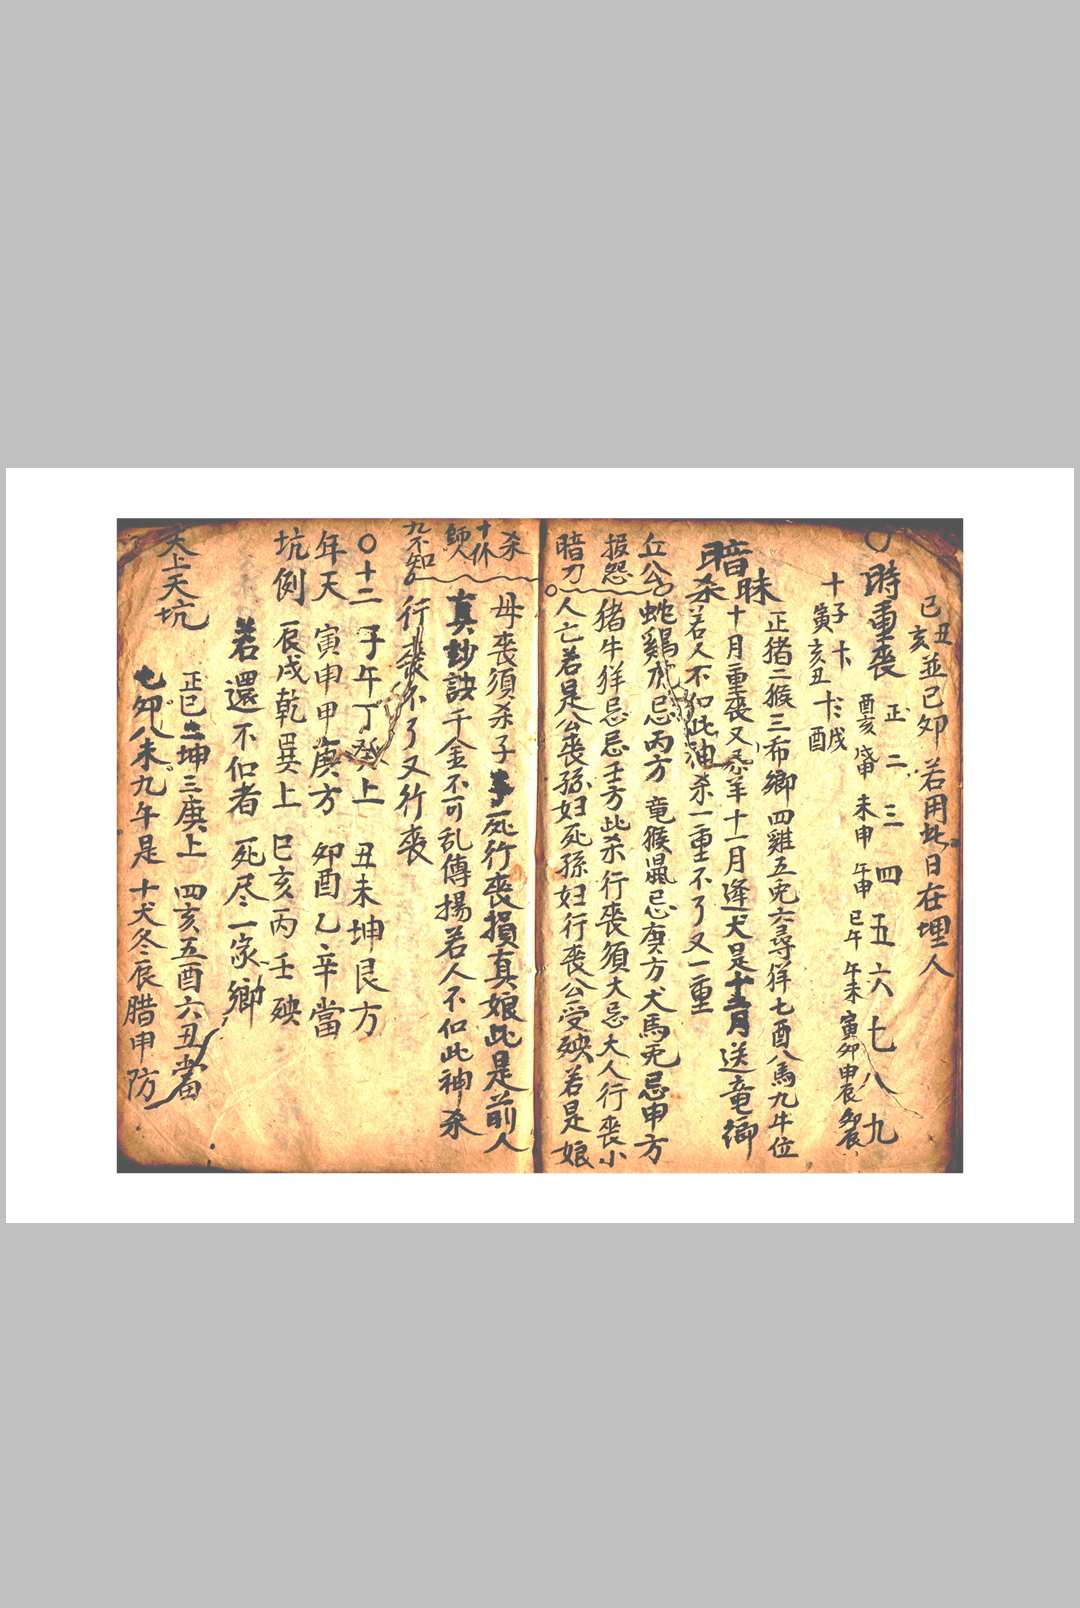 己丑亥並己夘若用此日在埋人
〇時重喪 正二三四五六七八九
酉亥 戌申 未申 午申 巳午 午未 寅夘 申辰 夘辰
十子寅 十一亥丑 十二戌酉
正猪二猴三希卿四雞五兎六尋羊七酉八馬九牛位
暗昧杀 十月重喪又忝羊十一月逢犬是十二月送竜卿
若人不和此油杀一重不了又一重
丘公 蛇鷄虎忌丙方 竜猴鼠忌庚方犬馬兎忌申方
报怨 猪牛羊忌忌壬方此杀行喪須大忌大人行喪小
暗刀 人亡若是公喪孫妇死孫妇行喪公受殃若是娘
杀 母喪須杀子 死行喪損真娘此是前人
十休師人 真妙訣千金不可乱傳揚若人不和此神杀
九不知 行喪不了又行喪
〇十二 子午丁癸上 丑未坤艮方
年天 寅申甲庚方 夘酉乙辛當
坑例 辰戌乾巽上 巳亥丙壬殃
若還不和者 死尽一家鄉
天上天坑 正巳二坤三庚上 四亥五酉六丑當
七夘八未九午是 十犬冬辰腊申防